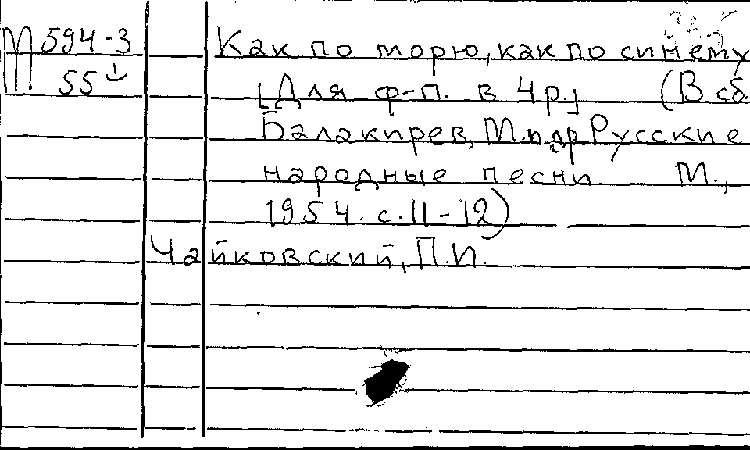 М 594-3
55
Как по морю, как по синему
[Для ф-п. в 4 р.] (В сб.
Балакирев, М. и др Русские
народные песни М.,
1954. с. 11-12)
Чайковский, П.И.